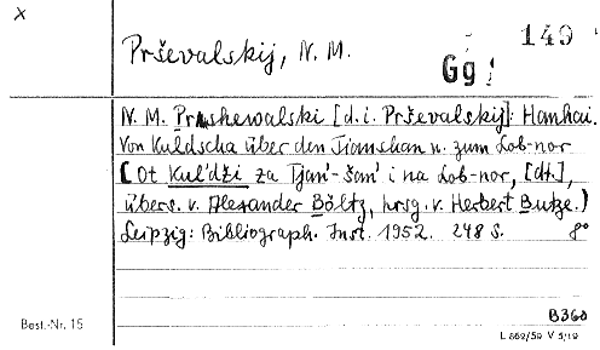 x
149
Prševalskij, N. M.
Gg
N. M. Prshewalski [d.i. Prševalskij]: Hanhai.
Von Kuldscha über den Tianschan u. zum Lob-nor
[Ot Kul'dži za Tjan'-šan' i na Lob-nor, [dt.],
übers. v. Alexander Böltz, hrsg. v. Herbert Butze.)
Leipzig: Bibliograph. Inst. 1952. 248 S. 8°
B360
Best.-Nr. 15